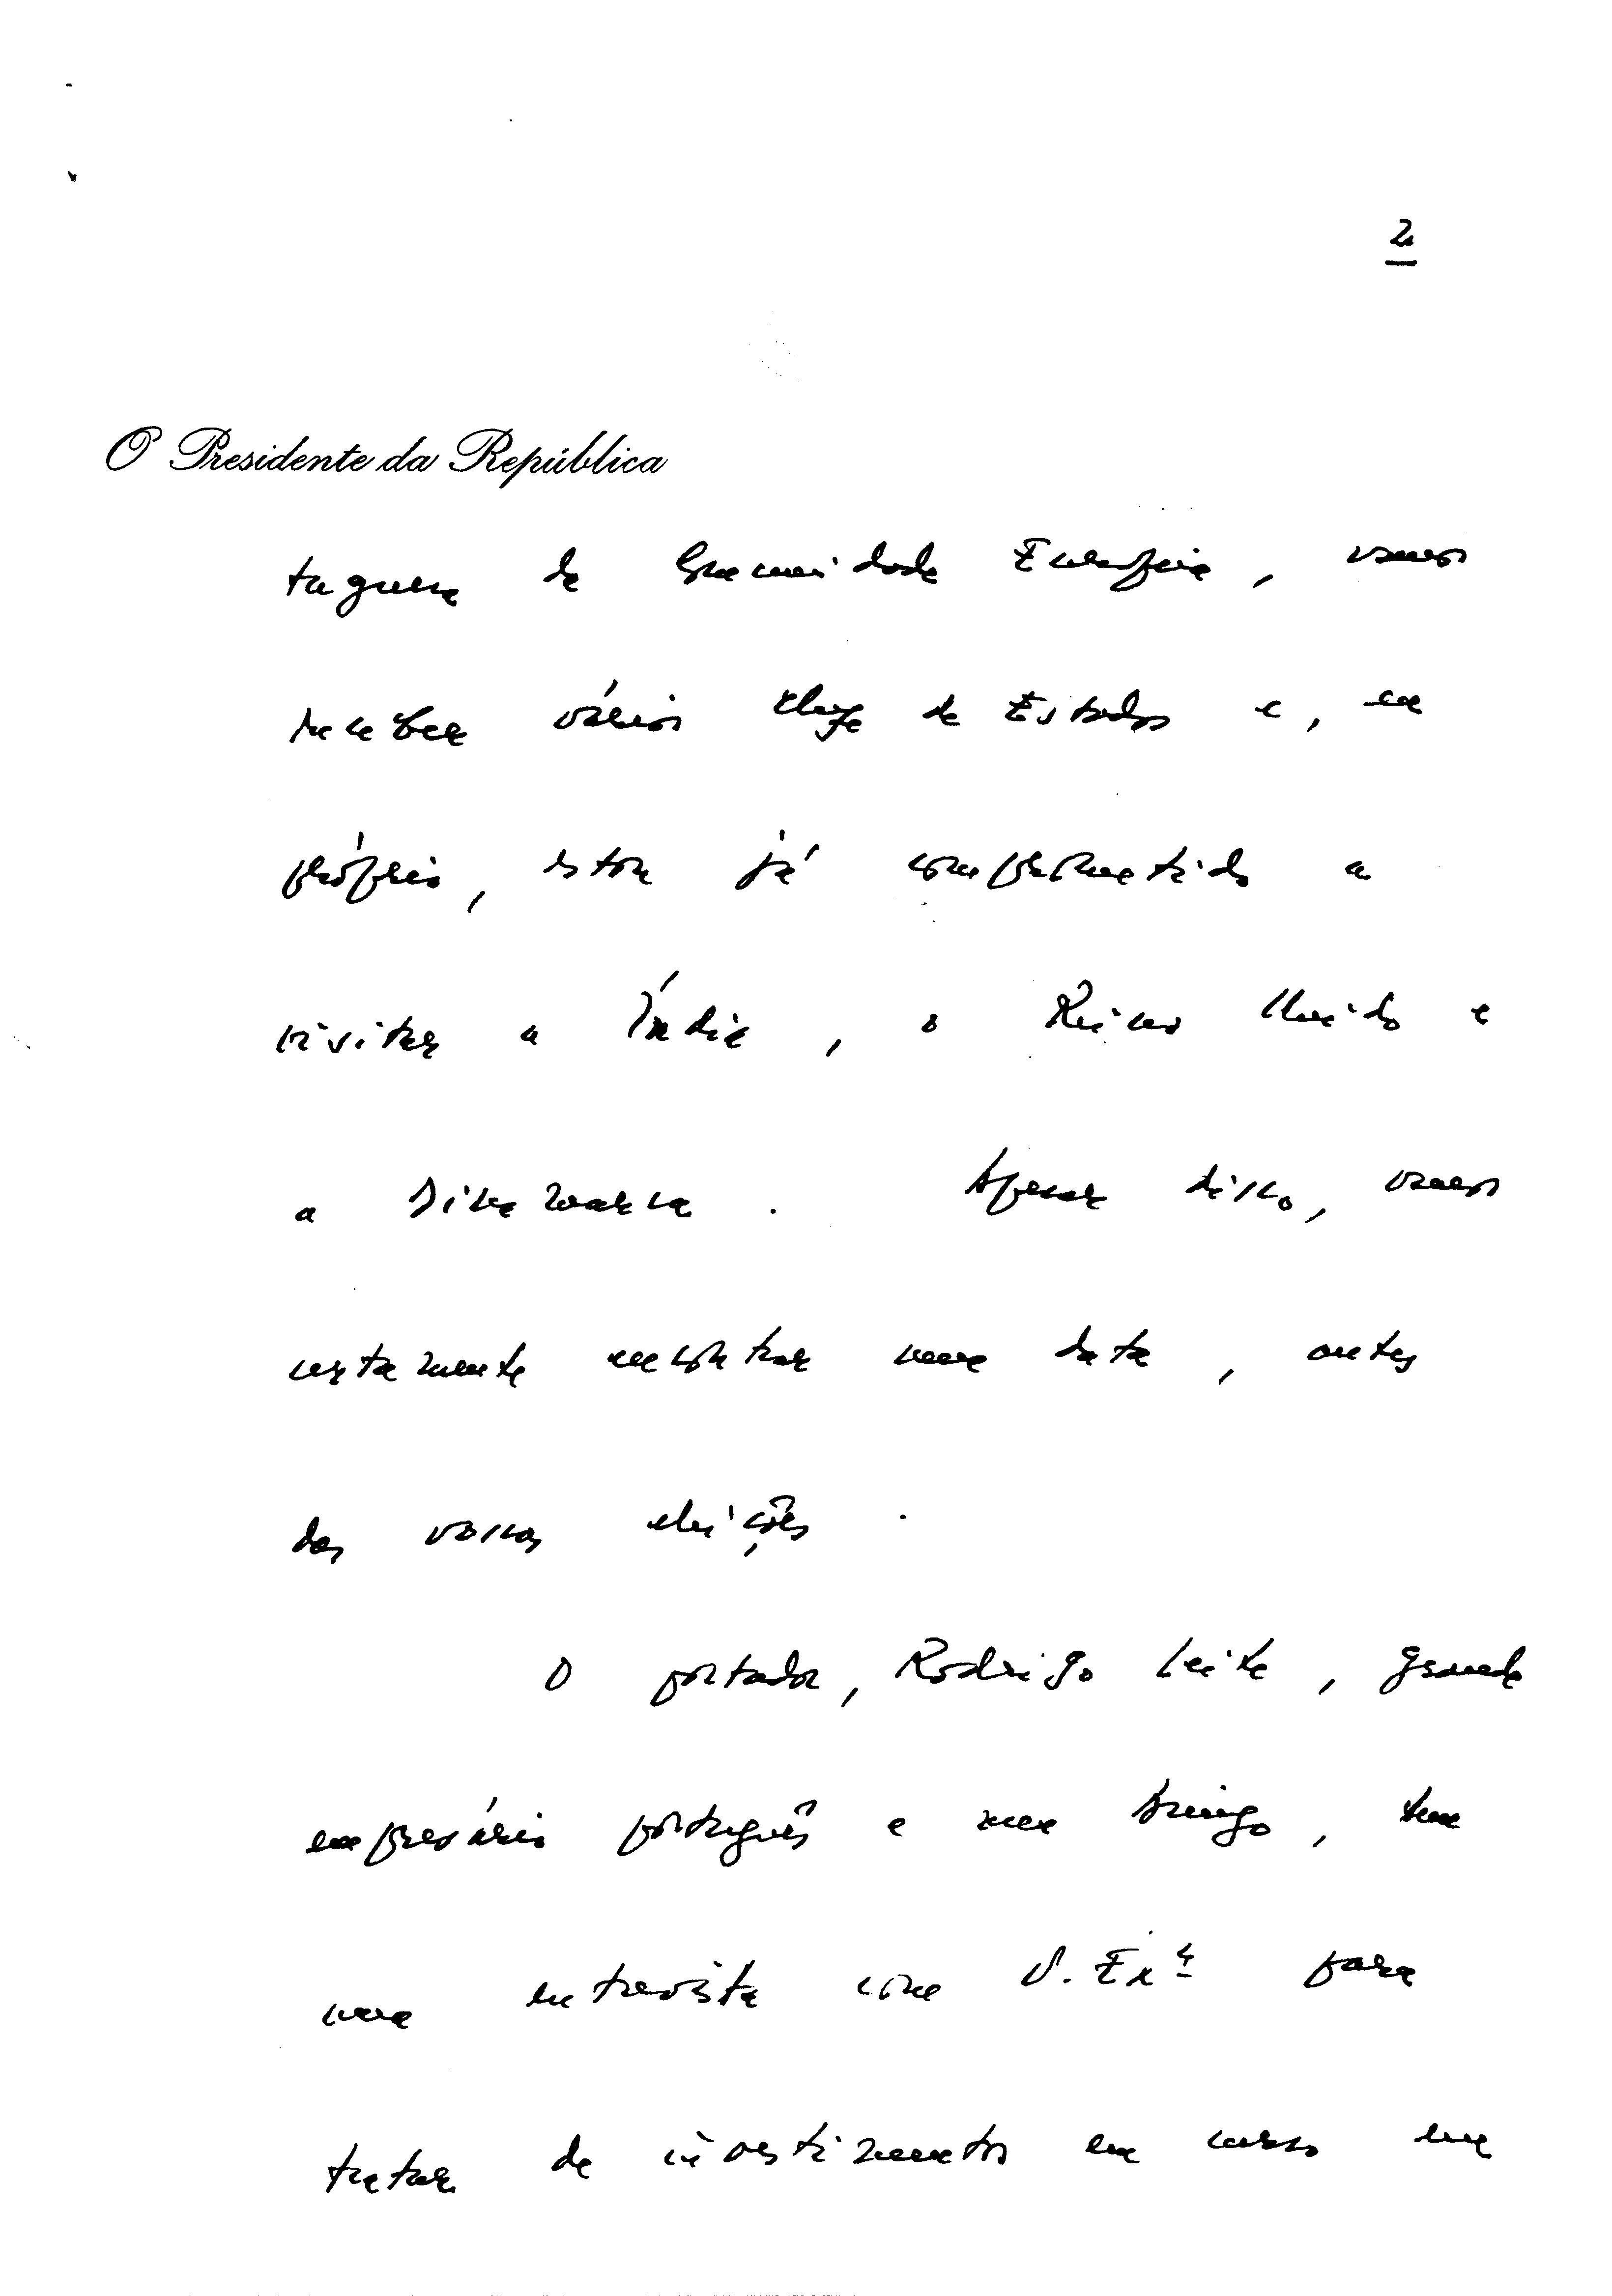 2
O Presidente da República
tuguesa da Comunidade Europeia, vamos
receber vários Chefe de Estados e, eu
próprio, estou já comprometido a
visitar a Índia, o Reino Unido e
a Dinamarca. Apesar disso, vamos
certamente encontrar uma data, antes
das vossas eleições.
O portador, Rodrigo Leite, grande
empresário português e meu Amigo, tem
uma entrevista com V. Exª para
tratar de investimentos em curso em